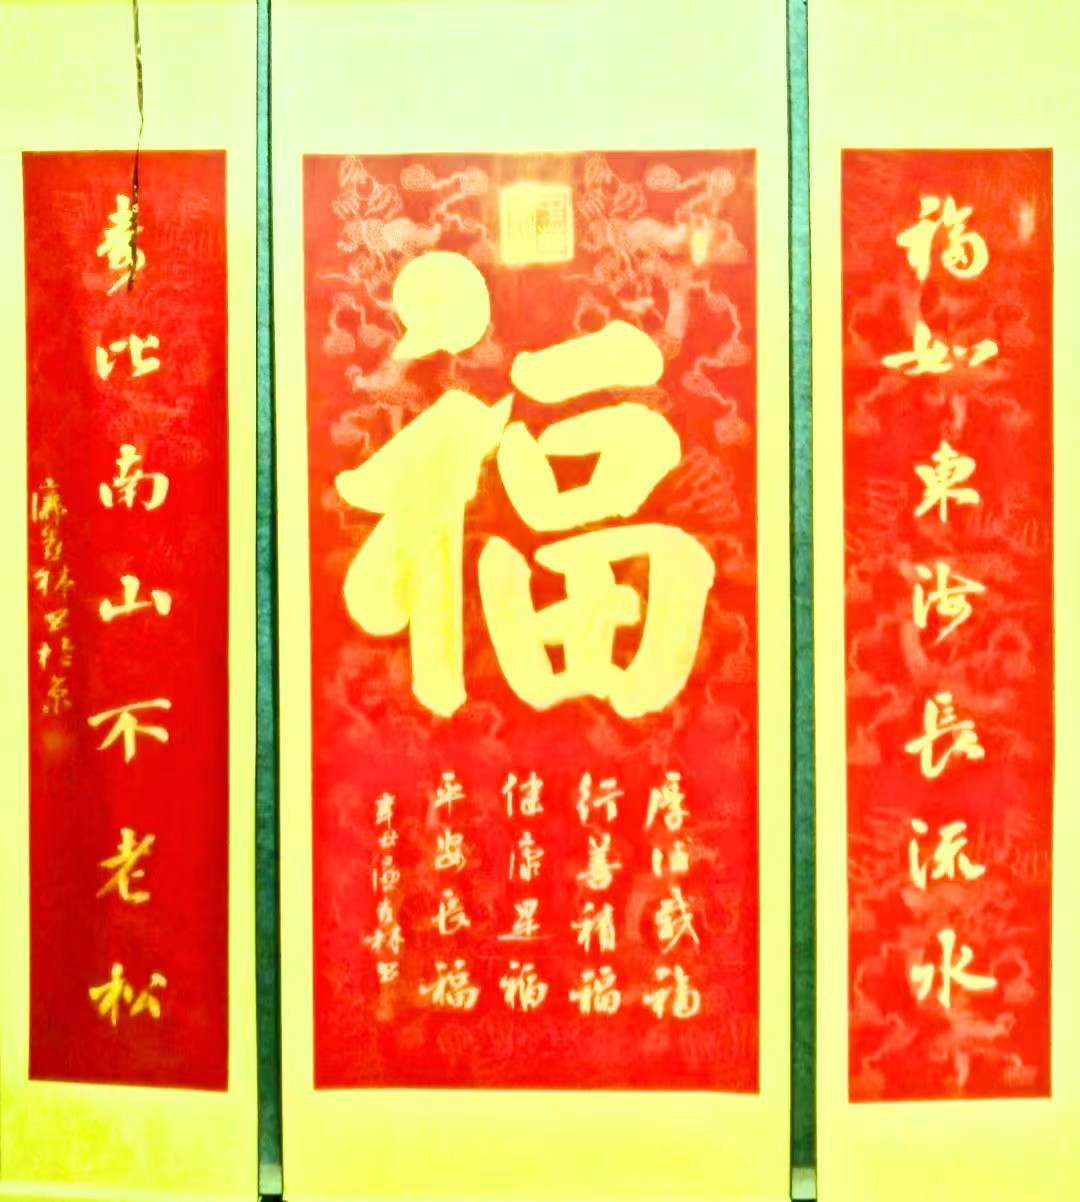 福如東海長流水
福
厚德載福
行善積福
健康是福
平安長福
寿比南山不老松